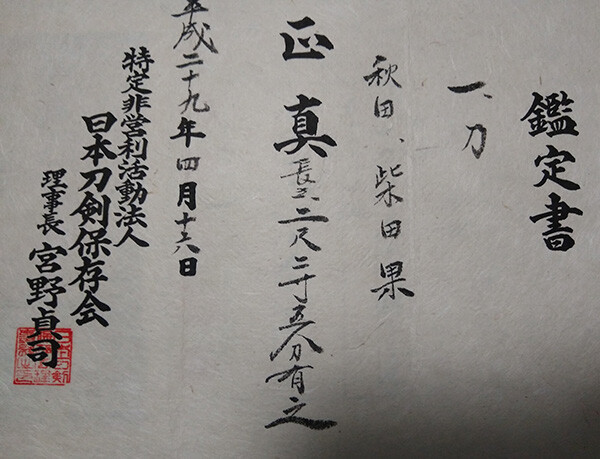 鑑定書
一、刀
秋田、柴田果
正真
長さ二尺二寸五分有之
平成二十九年四月十六日
特定非営利活動法人
日本刀剣保存会
理事長 宮野貞司